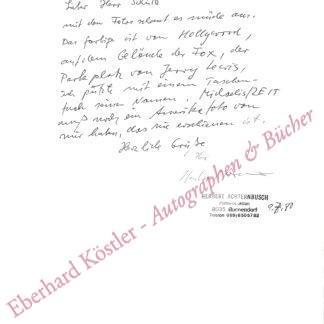 Lieber Herr Schulz
mit den Fotos schaut es müde aus.
Das farbige ist von Hollywood,
auf dem Gelände der Fox, der
Parkplatz von Jerry Lewis,
ich putzte mit einem Taschen-
tuch seinen Namen. Michaelis/ZEIT
muß noch ein Amerikafoto von
mir haben, das nie erschienen ist.
Herzliche Grüße
Ihr
HERBERT ACHTERNBUSCH
8031 Buchendorf
Telefon 089/8506782
Eberhard Köstler - Autographen & Bücher